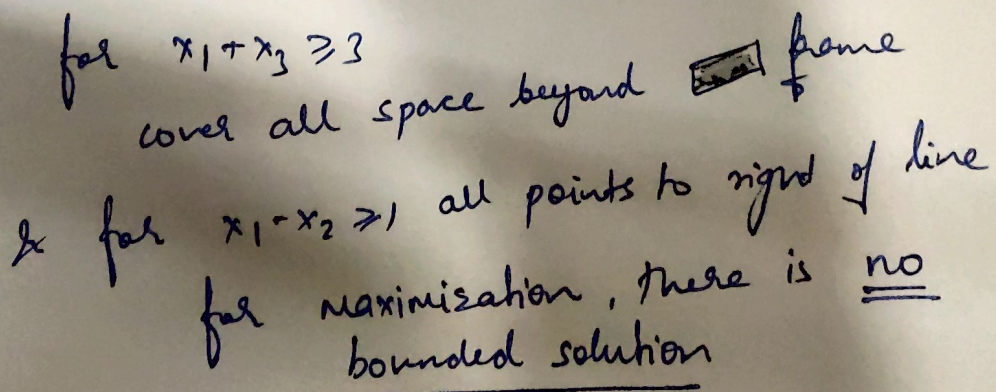 for x₁+x₃ ≥ 3
cover all space beyond frame
& for x₁-x₂ ≥ 1 all points to right of line
for maximization, there is no
bounded solution